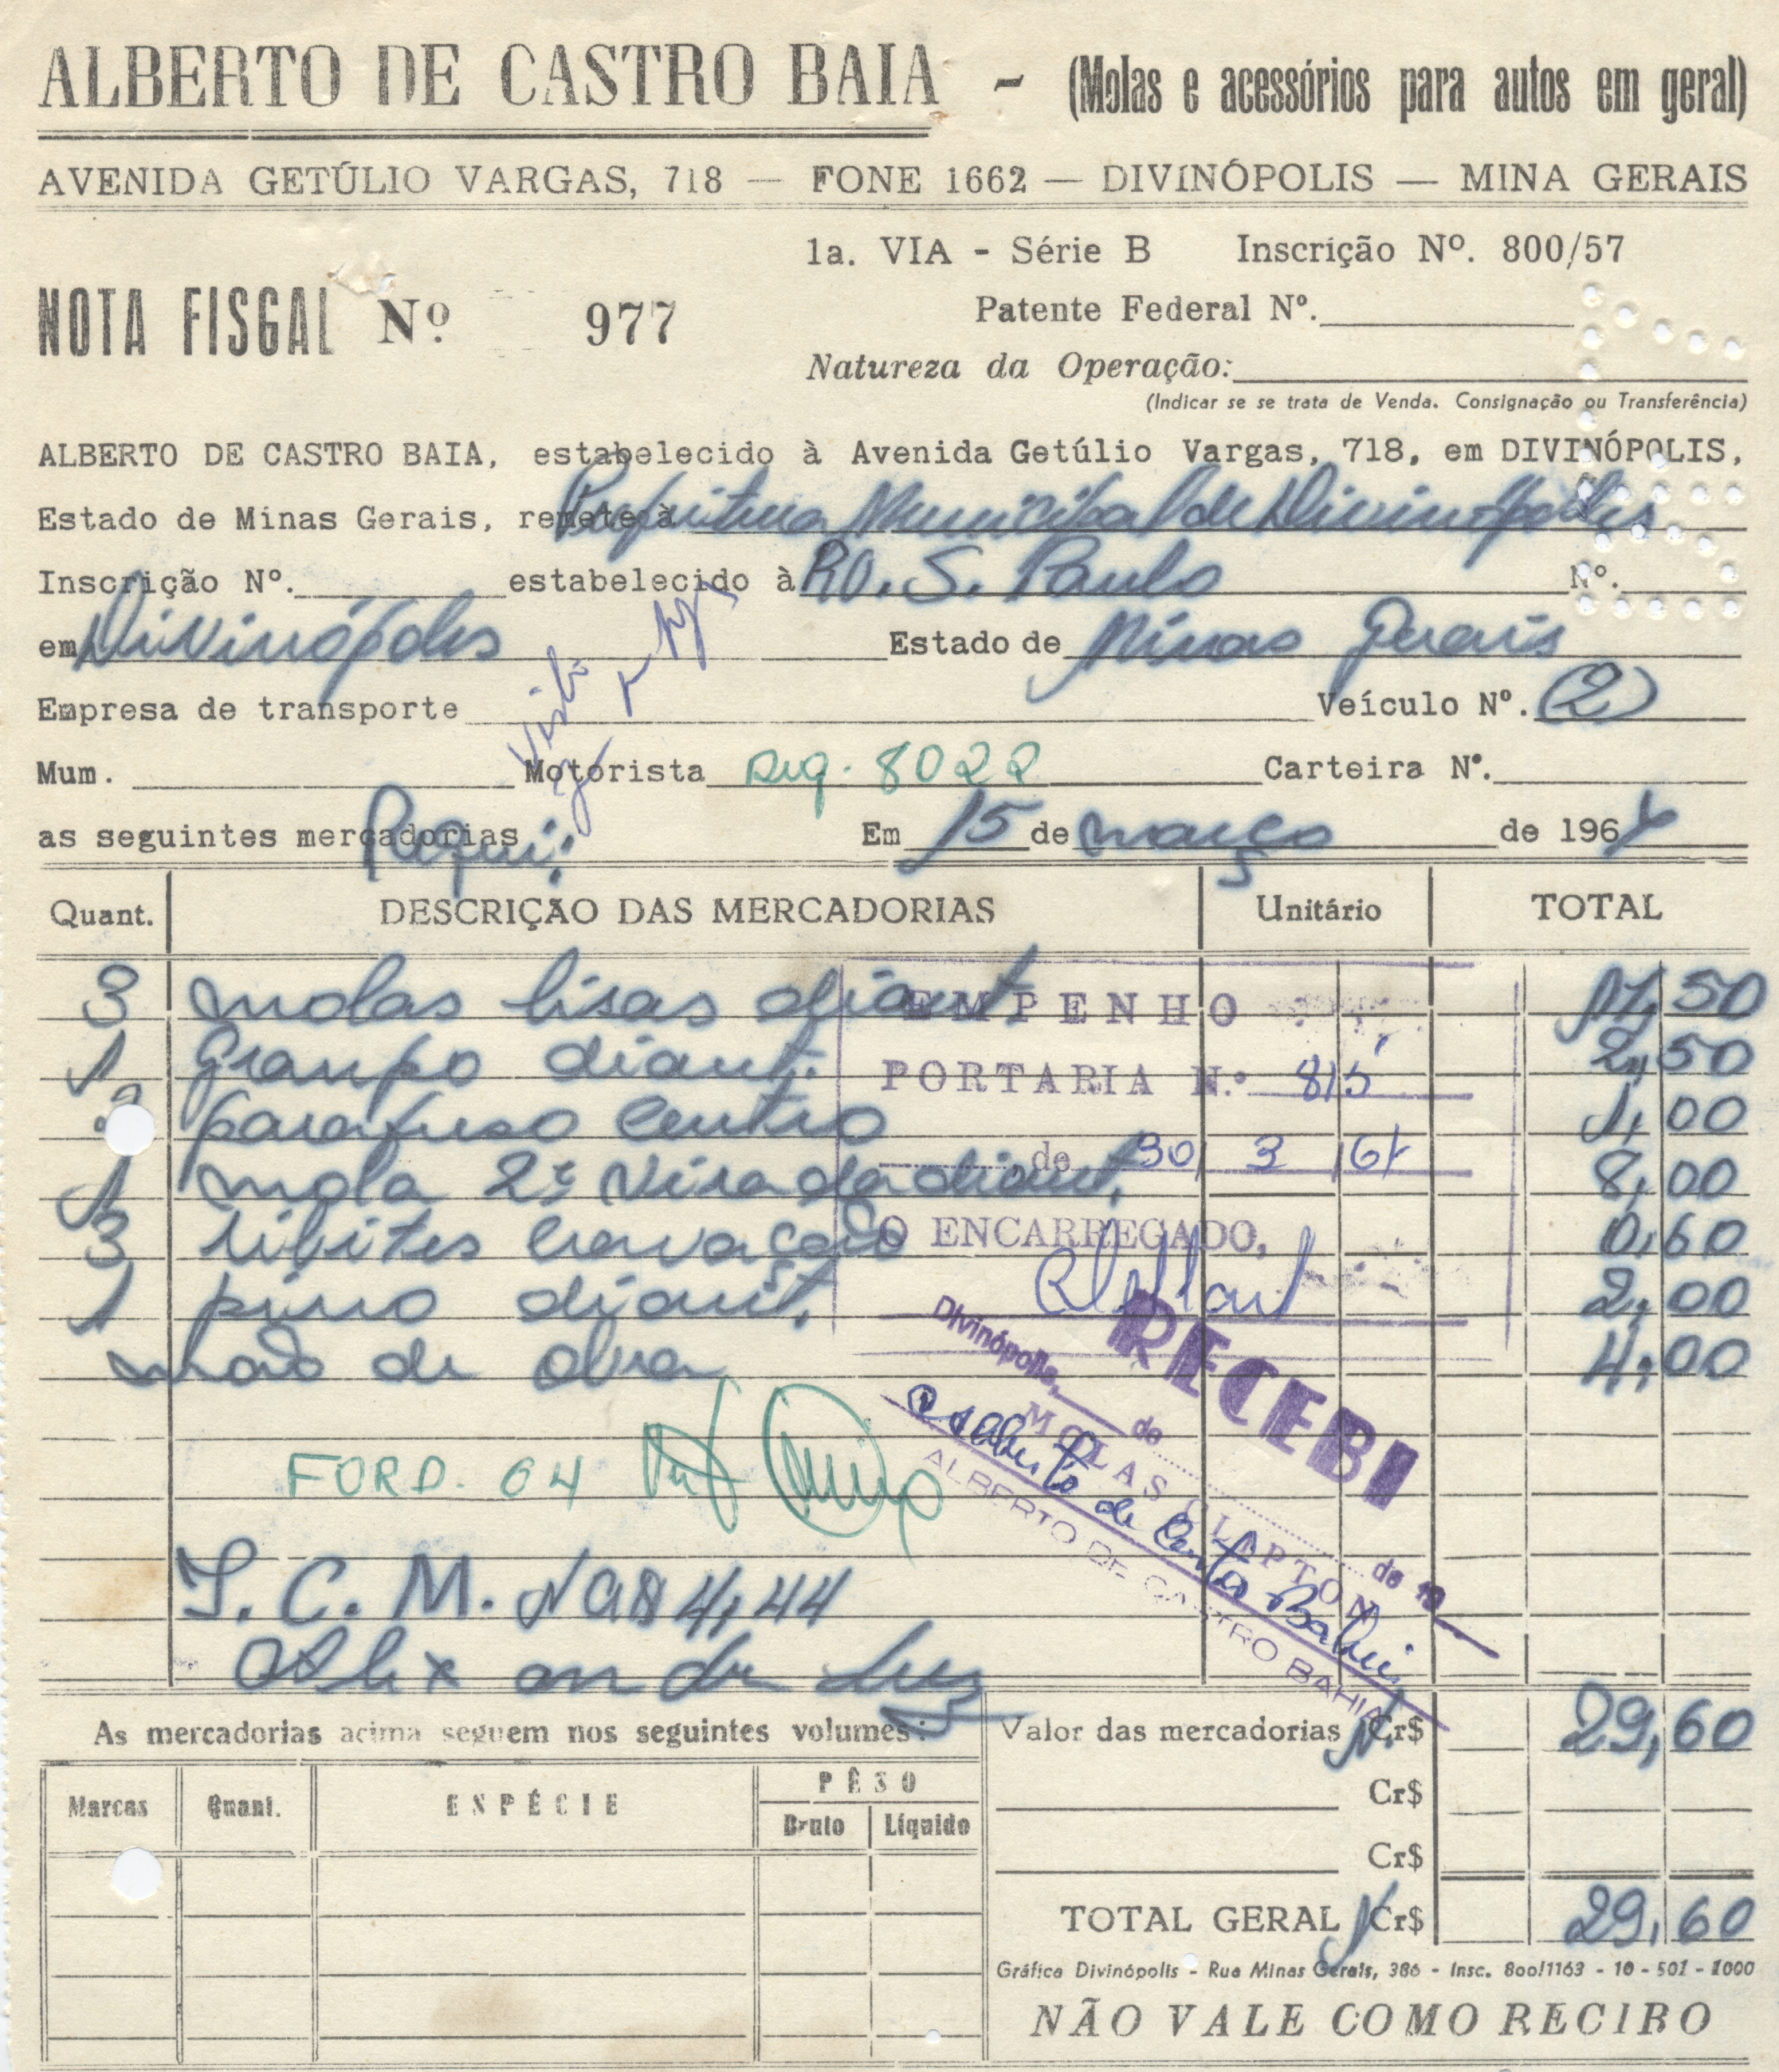 ALBERTO DE CASTRO BAIA - (Molas e acessórios para autos em geral)
AVENIDA GETÚLIO VARGAS, 718 — FONE 1662 — DIVINÓPOLIS — MINA GERAIS
1a. VIA - Série B Inscrição Nº. 800/57
NOTA FISCAL Nº 977
Patente Federal Nº.
Natureza da Operação:
(Indicar se se trata de Venda. Consignação ou Transferência)
ALBERTO DE CASTRO BAIA, estabelecido à Avenida Getúlio Vargas, 718, em DIVINÓPOLIS,
Estado de Minas Gerais, remete à Prefeitura Municipal de Divinópolis
Inscrição Nº. estabelecido à RO. S. Paulo Nº.
em Divinópolis Estado de Minas Gerais
Empresa de transporte Veículo Nº. (2)
Visto
Mum. Motorista Req. 8022 Carteira Nº.
as seguintes mercadorias Requi: Em 15 de março de 196
Quant. DESCRIÇÃO DAS MERCADORIAS Unitário TOTAL
3 molas lisas diant. 11,50
1 Grampo diant. 2,50
parafuso centro 1,00
1 mola 2ª virada diant. 8,00
3 ribites cravação 0,60
1 pino diant. 2,00
mão de obra 4,00
EMPENHO
PORTARIA N.º 815
de 30 3 67
O ENCARREGADO,
RECEBI
Divinópolis, de de 19
MOLAS CLIPTON
Alberto de Castro Bahia
ALBERTO DE CASTRO BAHIA
FORD. 64
I. C. M. 4,44
As mercadorias acima seguem nos seguintes volumes:
Valor das mercadorias NCr$ 29,60
Marcas Quant. ESPÉCIE PÊSO
Bruto Líquido
Cr$
Cr$
TOTAL GERAL NCr$ 29,60
Gráfica Divinópolis - Rua Minas Gerais, 386 - Insc. 800/1163 - 10 - 501 - 1000
NÃO VALE COMO RECIBO